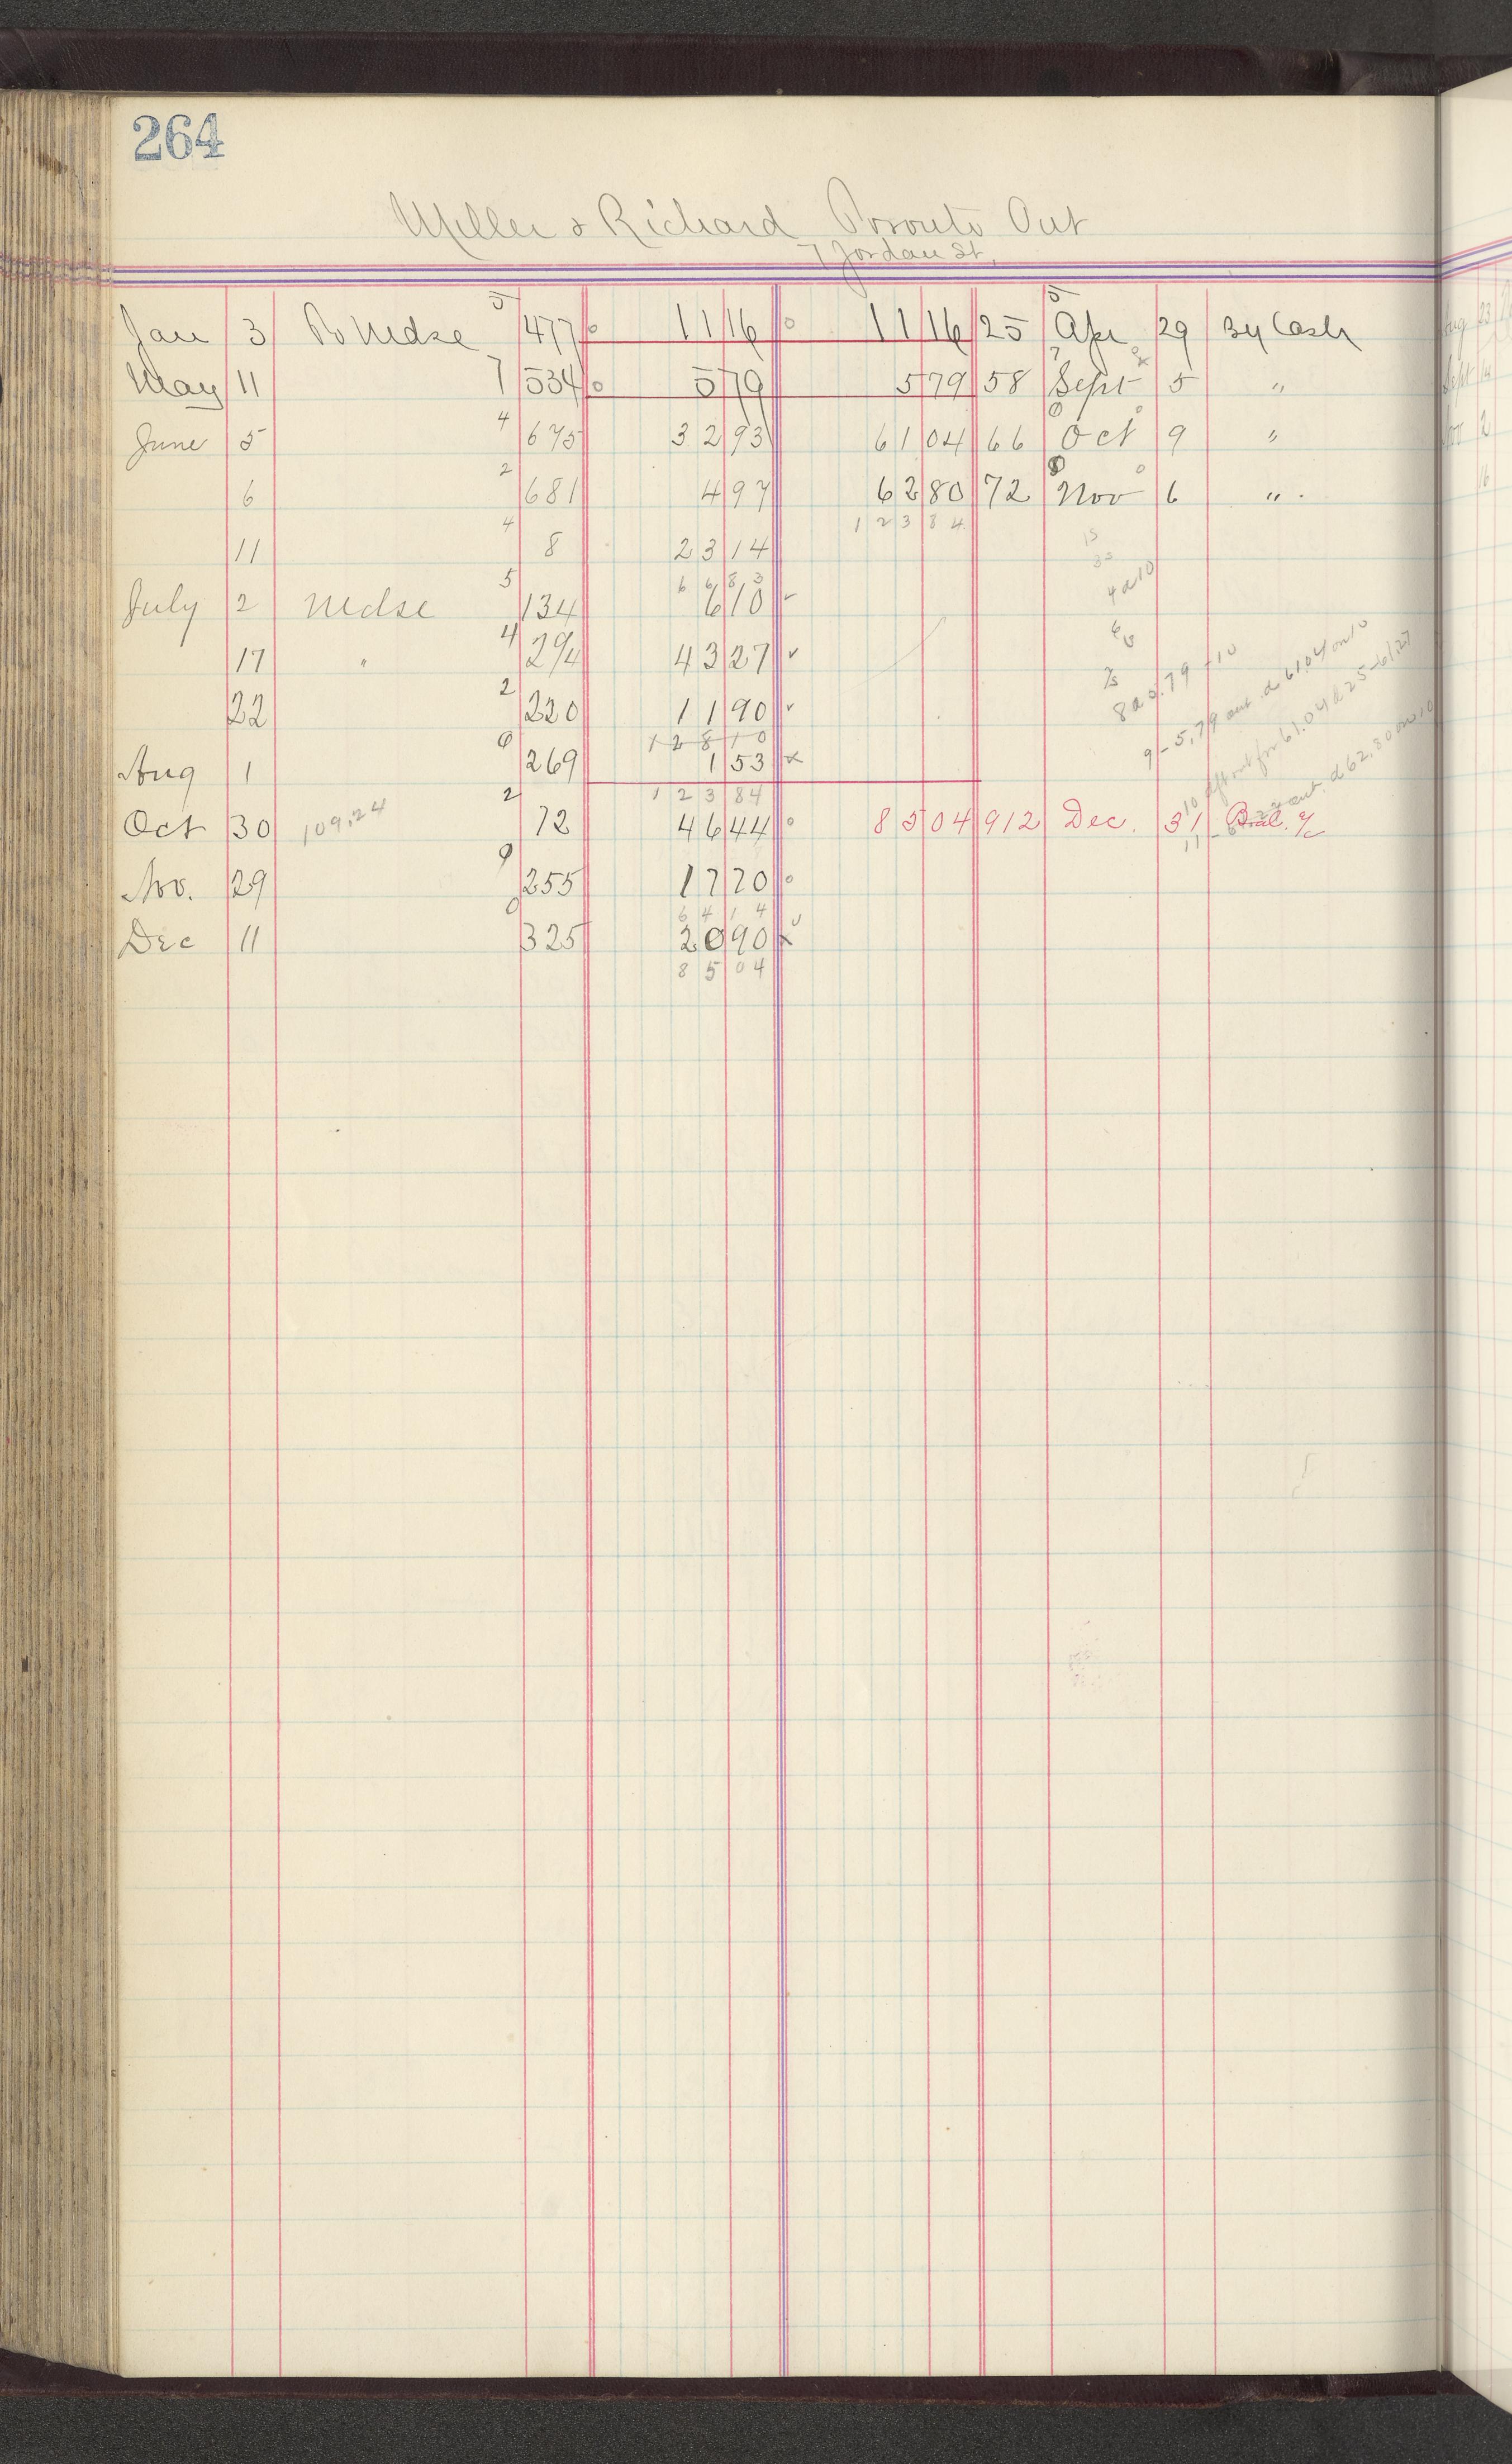 264
Miller & Richard Toronto Ont
7 Jordan St.
Jan 3 To Mdse 5 477 11 16 11 16 25 5 Apr 29 By Cash
May 11 7 534 5 79 5 79 58 7 Sept 5 "
June 5 4 675 32 93 61 04 66 Oct 9 "
6 2 681 4 97 62 80 72 Nov 6 "
1 2 3 8 4
11 4 8 23 14
6 6 8 3
July 2 Mdse 5 134 6 10 ✓
17 " 4 294 43 27 ✓
22 2 220 11 90 ✓
1 2 8 1 0
Aug 1 0 269 1 53 x
1 2 3 8 4
Oct 30 109.24 2 72 46 44 85 04 912 Dec. 31 Bal. %
Nov. 29 9 255 17 70
6 4 1 4
Dec 11 0 325 20 90 x
8 5 0 4
4 a 10
8 a 5.79 - 10
9 - 5.79 out. a 61.04 on 10